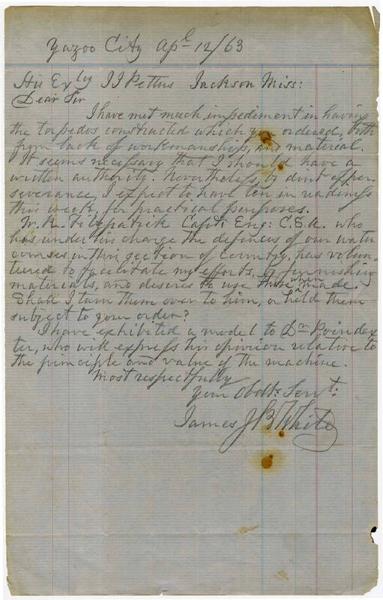 Yazoo City Apl 12/63
His Exly JJ Pettus Jackson Miss:
Dear Sir
I have met much impediment in having
the torpedos constructed which you ordered, both
from lack of workmanship, and material.
It seems necessary that I should have a
written authority. Nevertheless by dint of per-
severance, I expect to have ten in readiness
this week, for practical purposes.
W. R. Fitzpatrick Capt: Eng: C.S.A. who
has under his charge the defences of our water
courses in this section of country, has volun-
teered to facilitate my efforts, by furnishing
materials, and desires to use those when made.
Shall I turn them over to him, or hold them
subject to your order?
I have exhibited a model to Dr Poindex-
ter, who will express his opinion relative to
the principle and value of the machine.
Most respectfully
Your Obdt: Servt:
James J B White